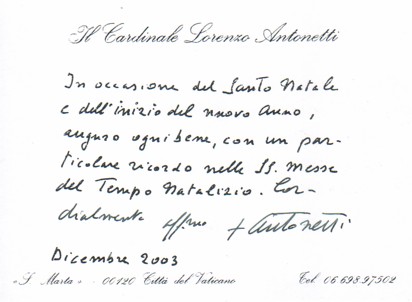 Il Cardinale Lorenzo Antonetti
In occasione del Santo Natale
e dell'inizio del nuovo Anno,
auguro ogni bene, con un par-
ticolare ricordo nelle SS. Messe
del Tempo Natalizio. Cor-
dialmente aff.mo + Antonetti
Dicembre 2003
«S. Marta» - 00120 Città del Vaticano Tel. 06.698.97502